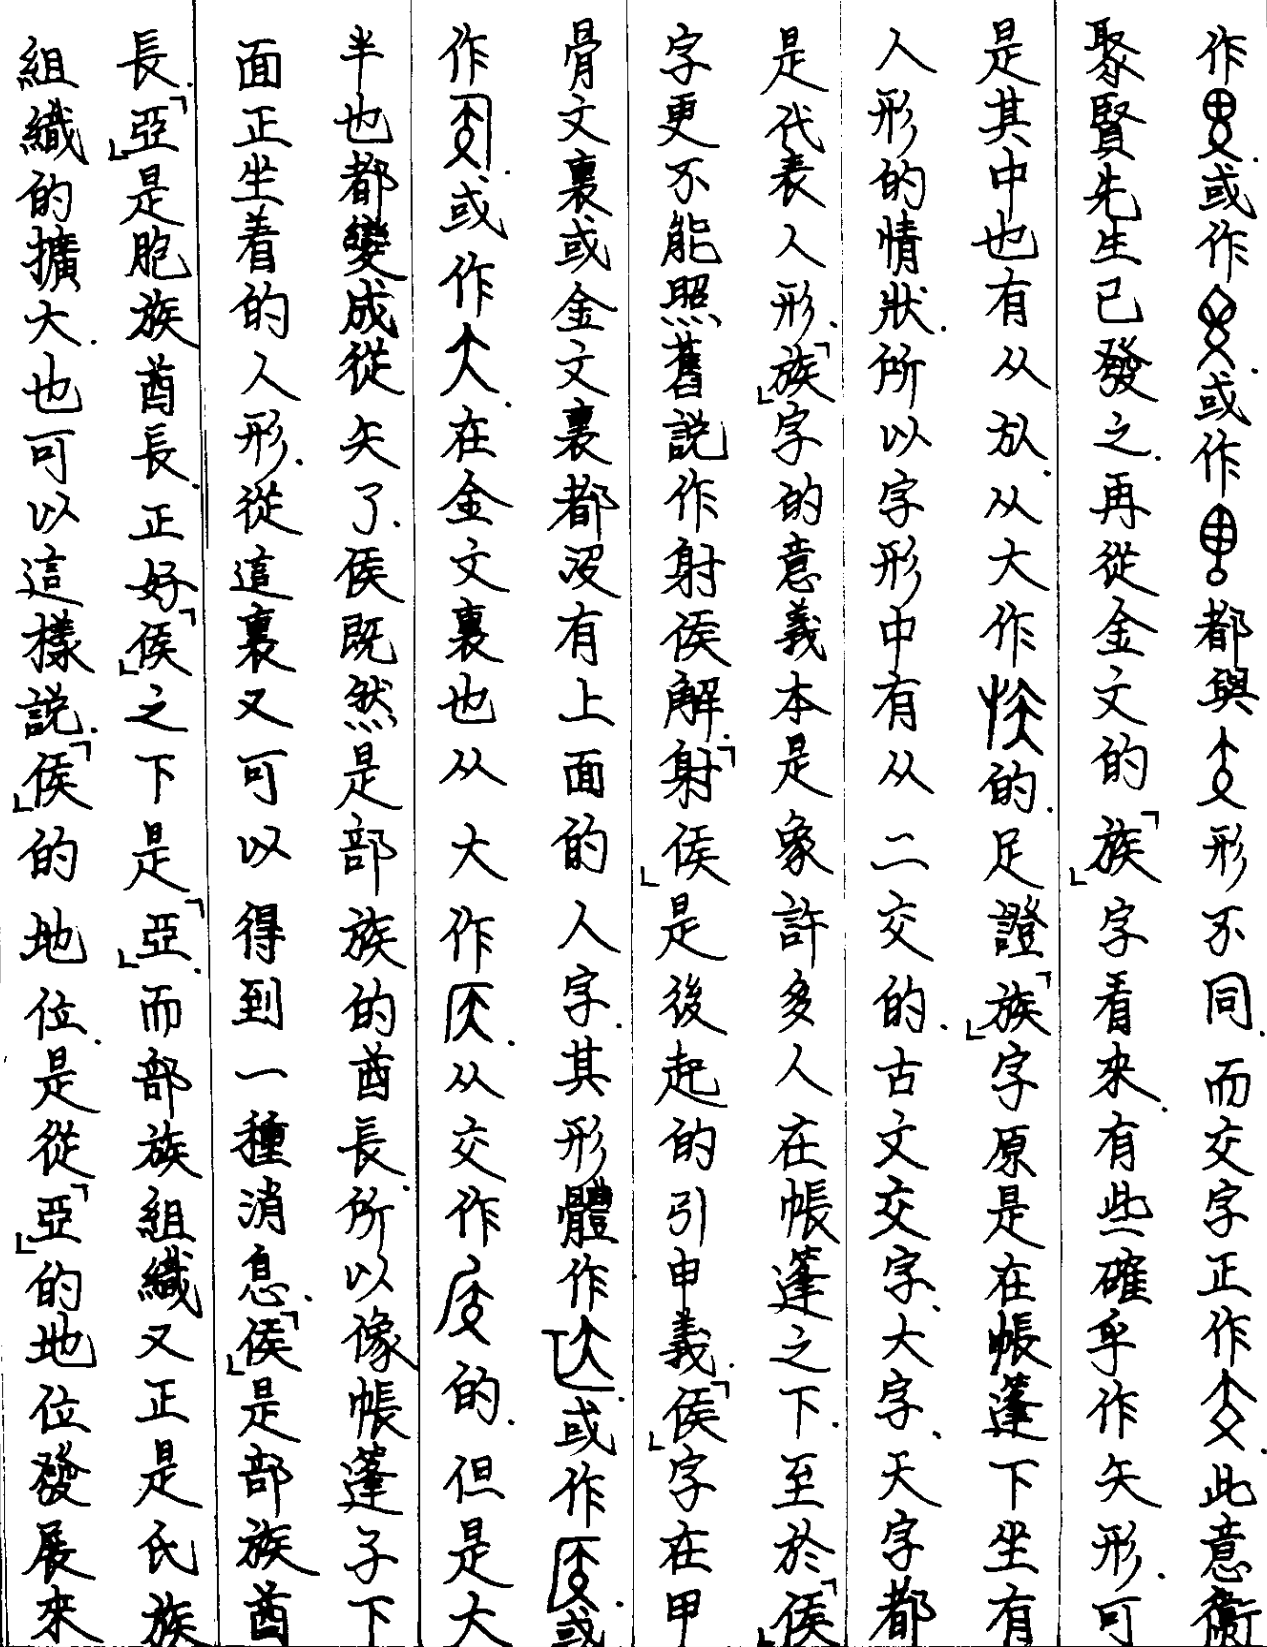 作或作或作都與形不同.而交字正作.此意衞
聚賢先生已發之.再從金文的「族」字看來.有些確乎作矢形.可
是其中也有从㫃.从大作的.足證「族」字原是在帳蓬下坐有
人形的情狀.所以字形中有从二交的.古文交字、大字、天字都
是代表人形.「族」字的意義本是象許多人在帳蓬之下.至於「侯」
字更不能照舊說作射侯解.「射侯」是後起的引申義.「侯」字在甲
骨文裏或金文裏都没有上面的人字.其形體作或作.或
作.或作.在金文裏也从大作.从交作的.但是大
半也都變成從矢了.侯既然是部族的酋長.所以像帳蓬子下
面正坐着的人形.從這裏又可以得到一種消息.「侯」是部族酋
長.「亞」是胞族酋長.正好「侯」之下是「亞」.而部族組織又正是氏族
組織的擴大.也可以這樣說.「侯」的地位.是從「亞」的地位發展來